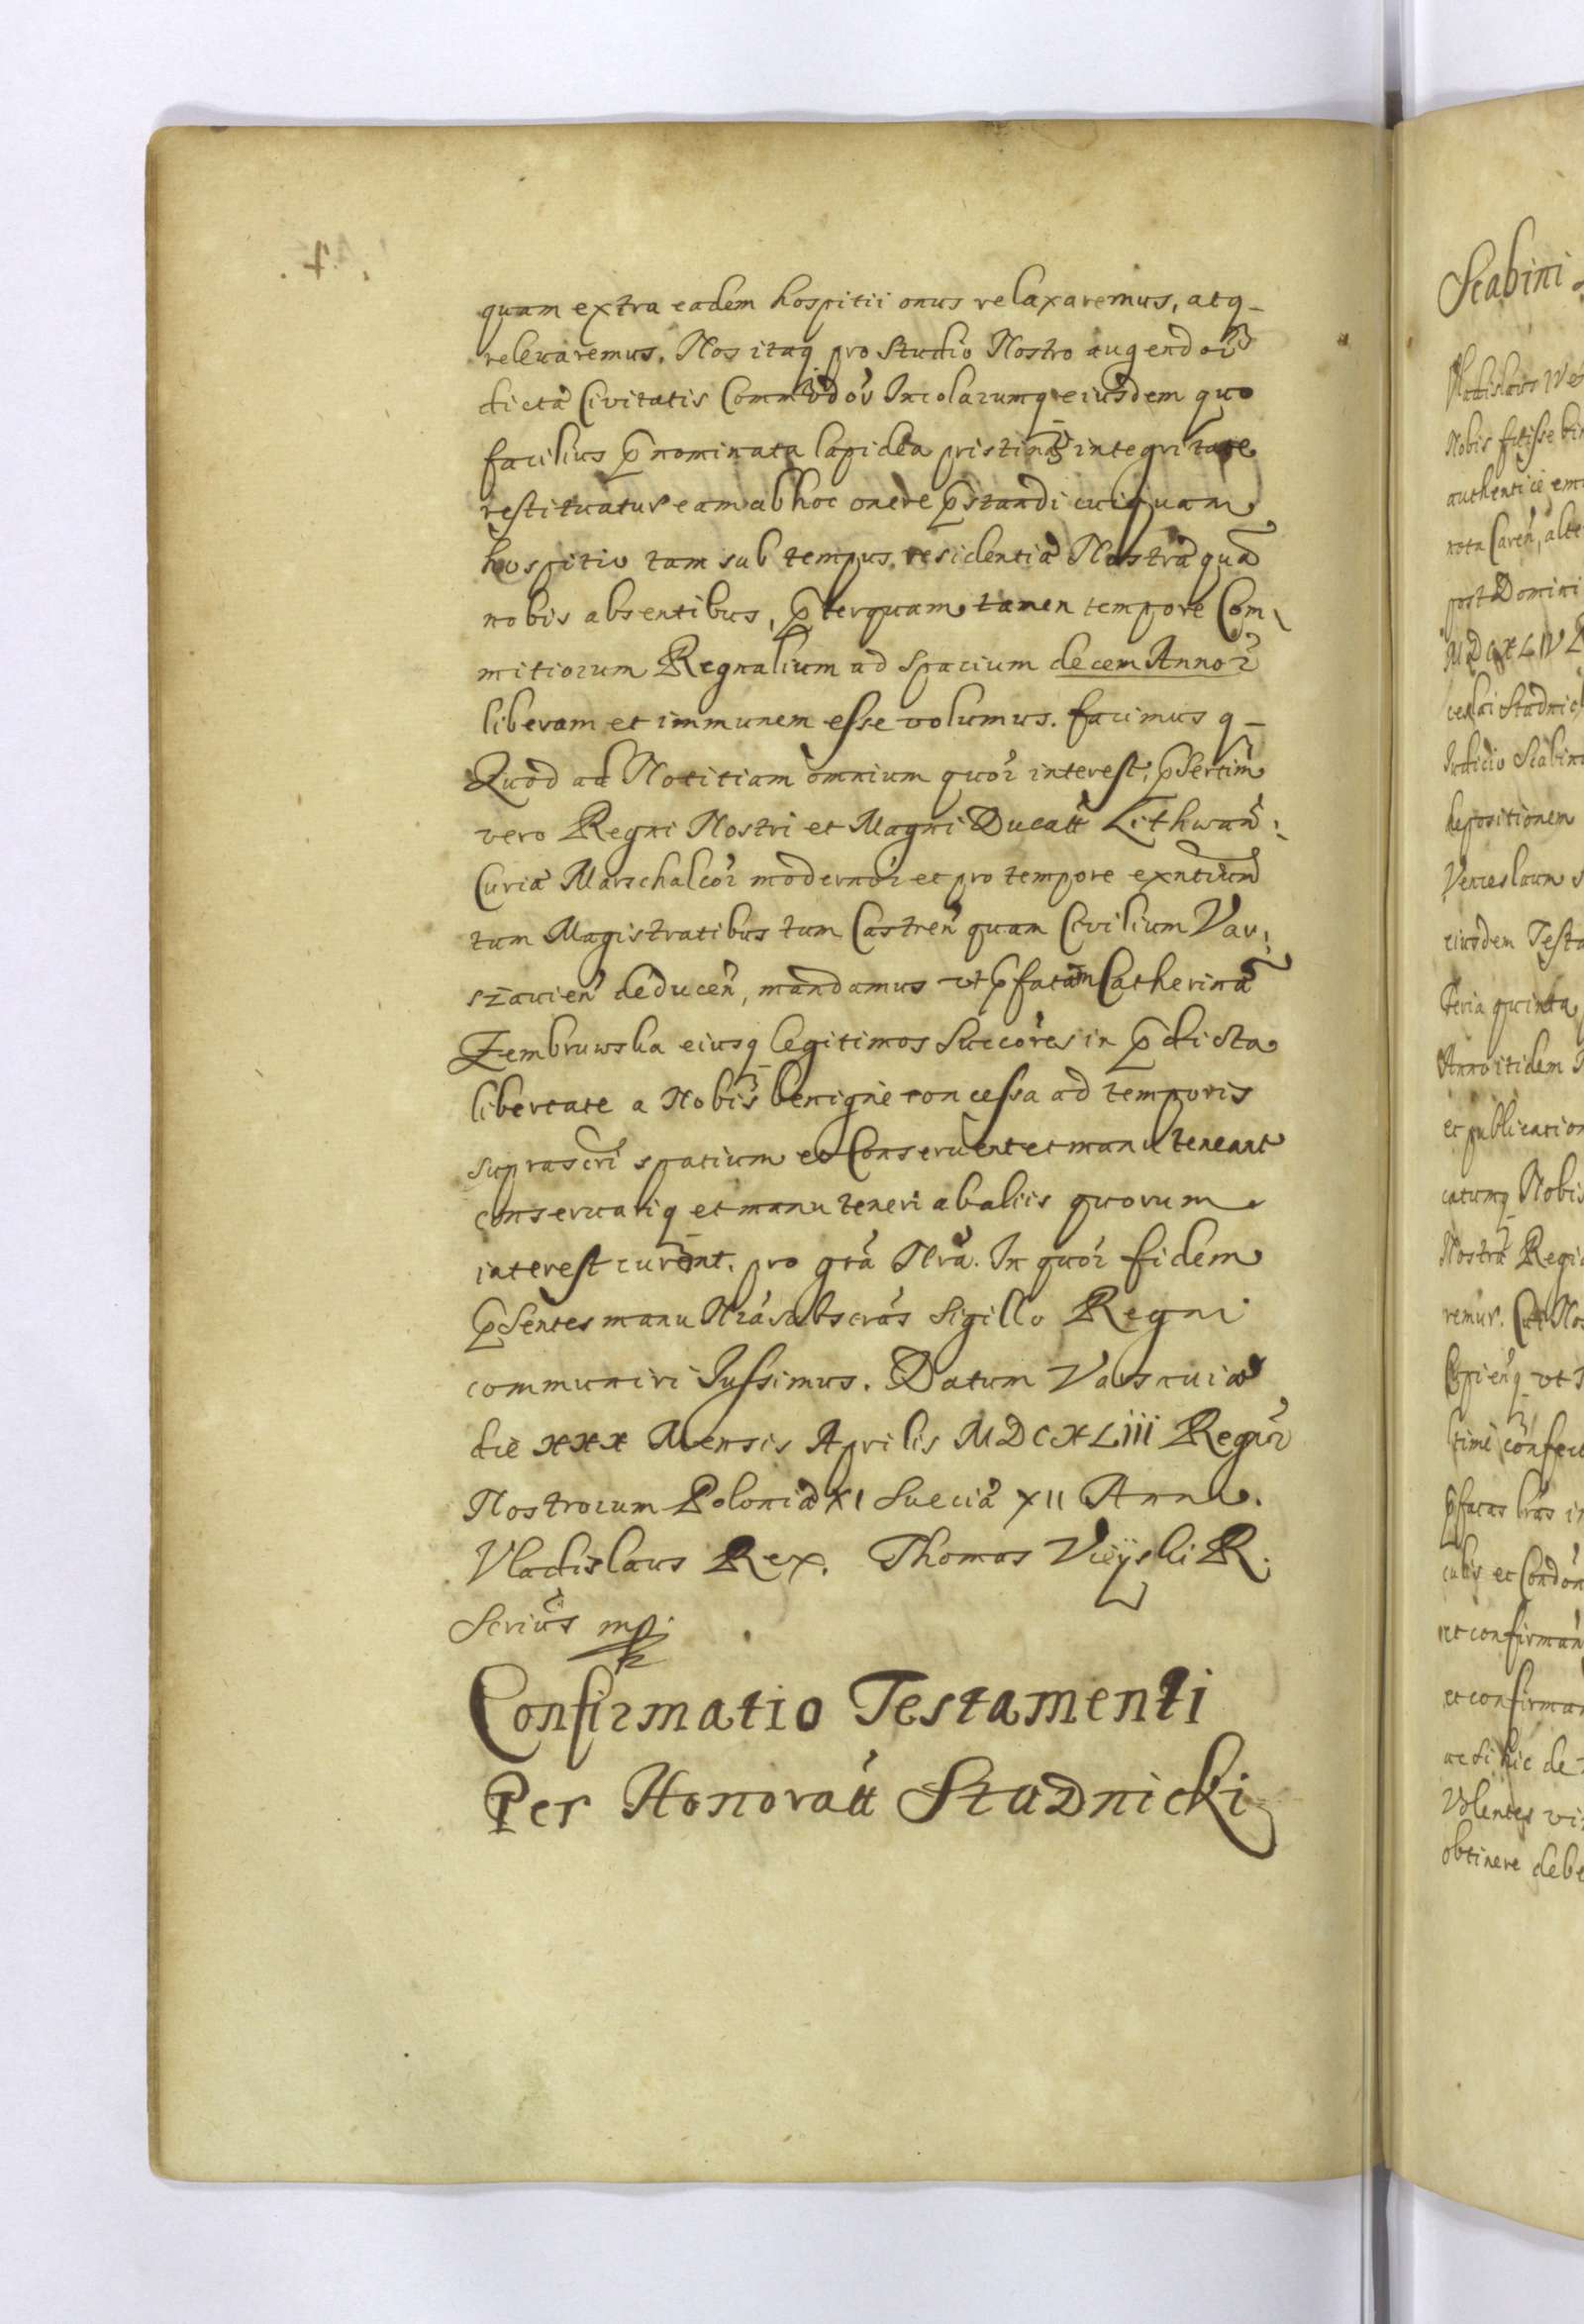 quam extra eadem hospitii onus relaxaremus, atq
releuaremus. Nos itaq pro studio Nostro augendor
dictæ Civitatis Commodor Incolarumq eiusdem quo
facilius p̄nominata lapidea pristinæ integritate
restituatur eam ab hoc onere p̄standi cuiquam
hospitio tam sub tempus residentiæ Nostræ quā
nobis absentibus, p̄terquam tamen tempore Com
mitiorum Regnalium ad spacium decem Annor
liberam et immunem esse volumus. facimus q
Quod ad Notitiam omnium quor interest, p̄sertim
vero Regni Nostri et Magni Ducatt Lithwan:
Curiæ Marschalcor modernor et pro tempore exntium
tum Magistratibus tum Castren quam Civilium Var:
szauien deducen, mandamus vt p̄fatam Catherinā
Zembruwska eiusq legitimos Succores in p̄dicta
libertate a Nobis benigne concessa ad temporis
suprascri spatium et Conseruent et manu teneant
conseruariq et manu teneri ab aliis quorum
interest curent. pro gra Nra. In quor fidem
p̄sentes manu Nra subscras Sigillo Regni
communiri Jussimus. Datum Varsauiæ
die XXX Mensis Aprilis MDCXLiii Regnor
Nostrorum Poloniæ XI Sueciæ XII Anno.
Vladislaus Rex. Thomas Vieyski R.
Scrius mp.
Confirmatio Testamenti
Per Honoratt Stadnicki
Scabini
Vladislaus
Nobis fuisse
authentice
nota Caren, alte
post Domini
MDCXLIV
ceslai Stadnic
Judicio Scabin
depositionem
Venceslaum
eiusdem Testa
Feria quinta
Anno itidem
et publication
catumq Nobis
Nostra Regia
remur.
Cupienq vt
confect
p̄fatas lras in
et Condon
et confirman
et confirman
de
Volentes
obtinere debe